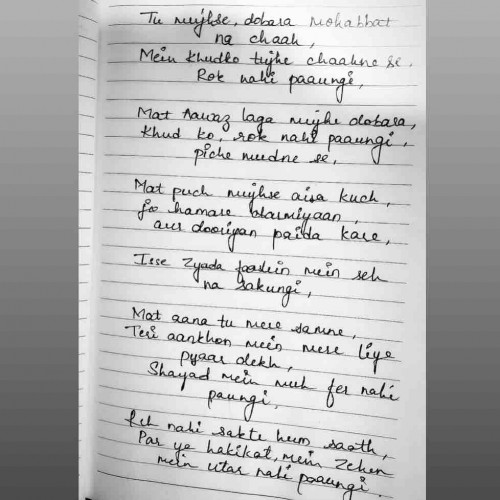 Tu mujhse, dobara mohabbat
na chaah,
Mein khudko tujhe chaahne se,
Rok nahi paaungi,
Mat aawaz laga mujhe dobara,
Khud ko, rok nahi paaungi,
piche mudne se,
Mat puch mujhse aisa kuch,
Jo hamare darmiyaan,
aur dooriyan paida kare,
Isse zyada faaslein mein seh
na sakungi,
Mat aana tu mere samne,
Teri aankhon mein mere liye
pyaar dekh,
Shayad mein muh fer nahi
paungi,
Reh nahi sakte hum saath,
Par ye hakikat, mein zehen
mein utar nahi paaungi.